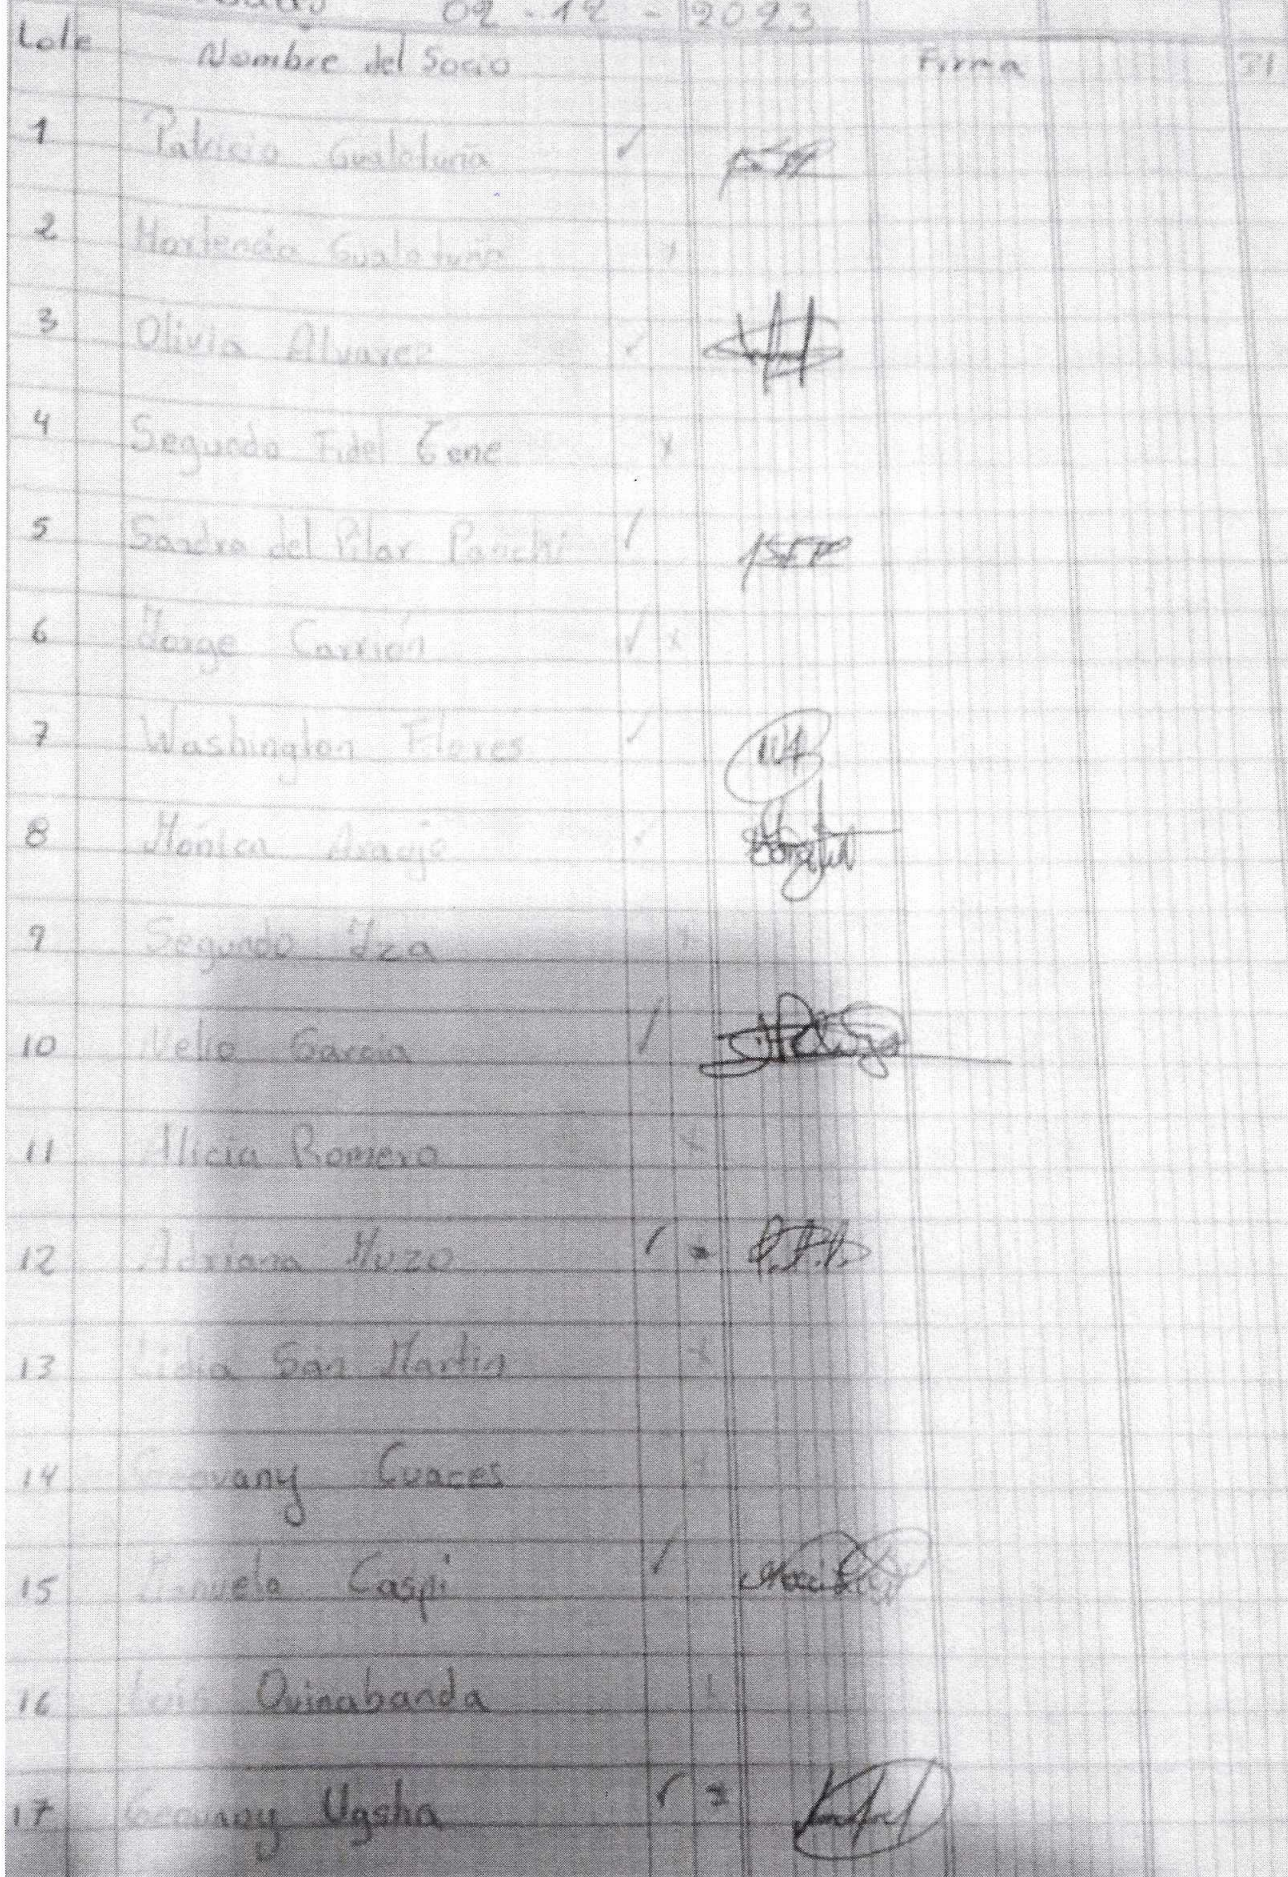 02 - 12 - 2023
Lote Nombre del Socio Firma
1 Patricio Gualotuña ✓
2 Hortencia Gualotuña x
3 Olivia Alvarez ✓
4 Segundo Fidel Tene x
5 Sandra del Pilar Panchi ✓
6 Jorge Carrión ✓ x
7 Washington Flores ✓
8 Mónica Araujo ✓
9 Segundo Iza x
10 Nelio Garcia ✓
11 Alicia Romero x
12 Adriana Muzo ✓ x
13 Lidia San Martin x
14 Geovany Cuaces x
15 Manuela Caspi ✓
16 Luis Quinabanda x
17 Geovany Ugsha ✓ x